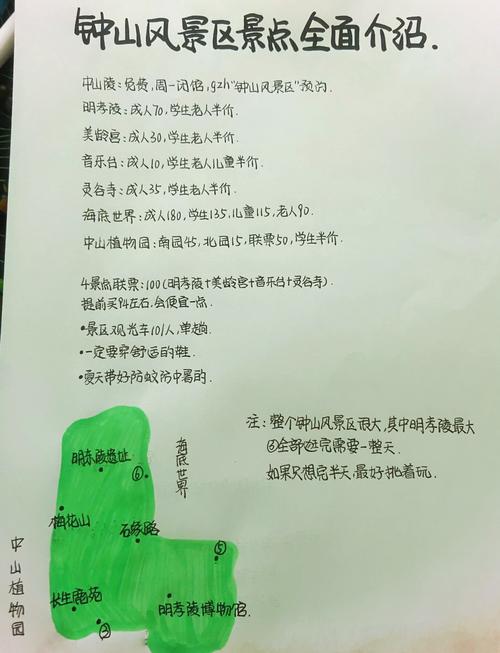 钟山风景区景点全面介绍.
中山陵:免费,周一闭馆,gzh"钟山风景区"预约.
明孝陵:成人70,学生老人半价.
美龄宫:成人30,学生老人半价.
音乐台:成人10,学生老人儿童半价.
灵谷寺:成人35,学生老人半价.
海底世界:成人180,学生135,儿童115,老人90.
中山植物园:南园45,北园15,联票50,学生半价.
4景点联票:100(明孝陵+美龄宫+音乐台+灵谷寺)
提前买94左右,会便宜一点.
•景区观光车10/人,单趟.
•一定要穿舒适的鞋.
•夏天带好防蚊防中暑的.
注:整个钟山风景区很大,其中明孝陵最大
⑥全部逛完需要一整天.
如果只想完半天,最好挑着玩.
明东陵遗址
⑥
海底世界
梅花山
石象路
⑤
中山植物园
长生鹿苑
明孝陵博物馆.